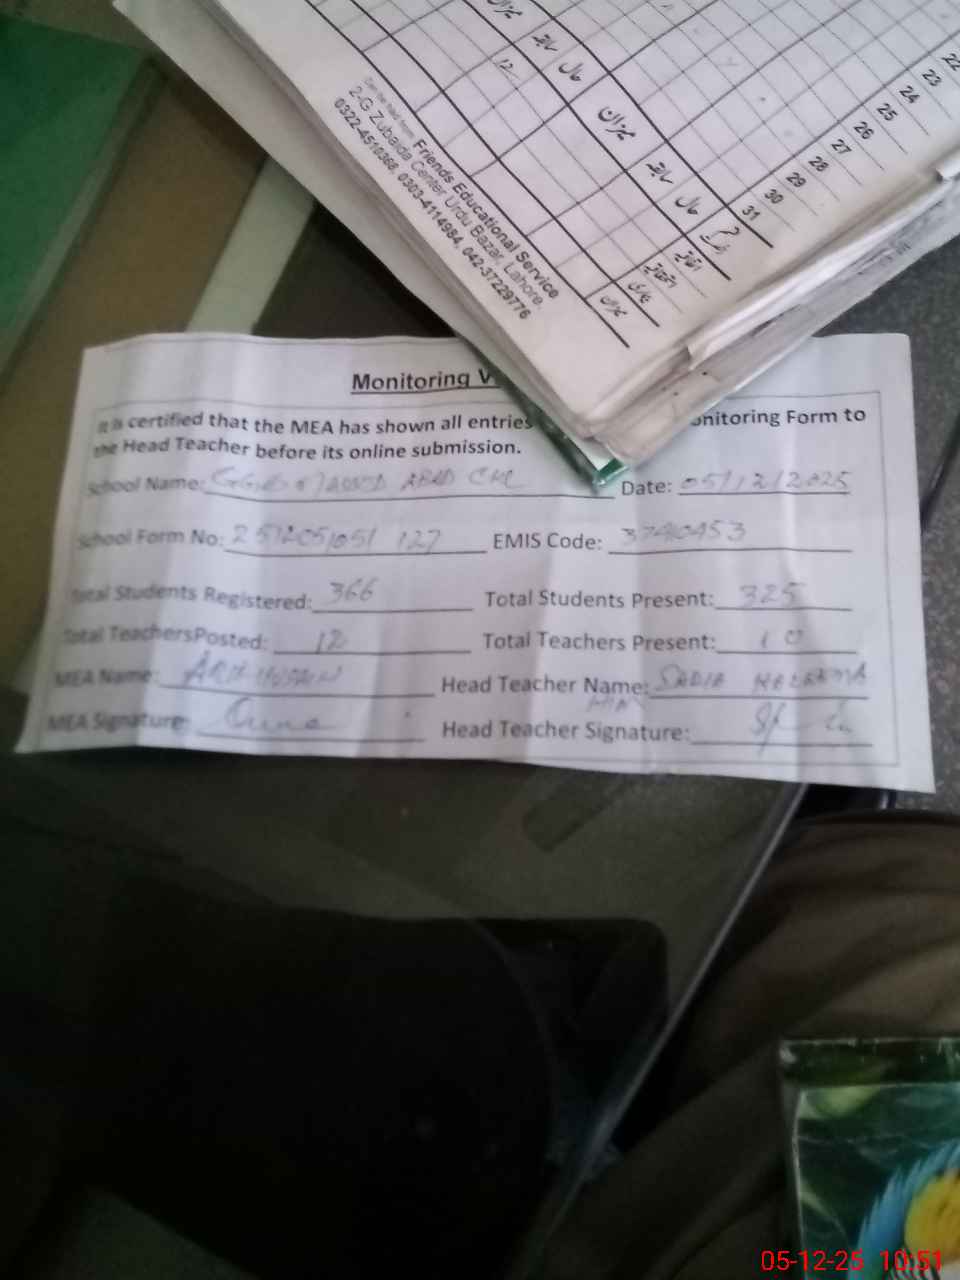 میزان
حال سابقہ
12
میزان
حال سابقہ
22
23
24
25
26
27
28
29
30
31
میزان
Can be had from: Friends Educational Service
2-G Zubaida Center Urdu Bazar, Lahore.
0322-4510368, 0303-4114984, 042-37229776
Monitoring V
It is certified that the MEA has shown all entries onitoring Form to
the Head Teacher before its online submission.
School Name: ABAD Date: 05/12/2025
School Form No: 251205051 127 EMIS Code: 37410453
Total Students Registered: 366 Total Students Present: 325
Total TeachersPosted: 12 Total Teachers Present: 10
MEA Name: Head Teacher Name: SADIA
MEA Signature: Head Teacher Signature:
05-12-25 10:51